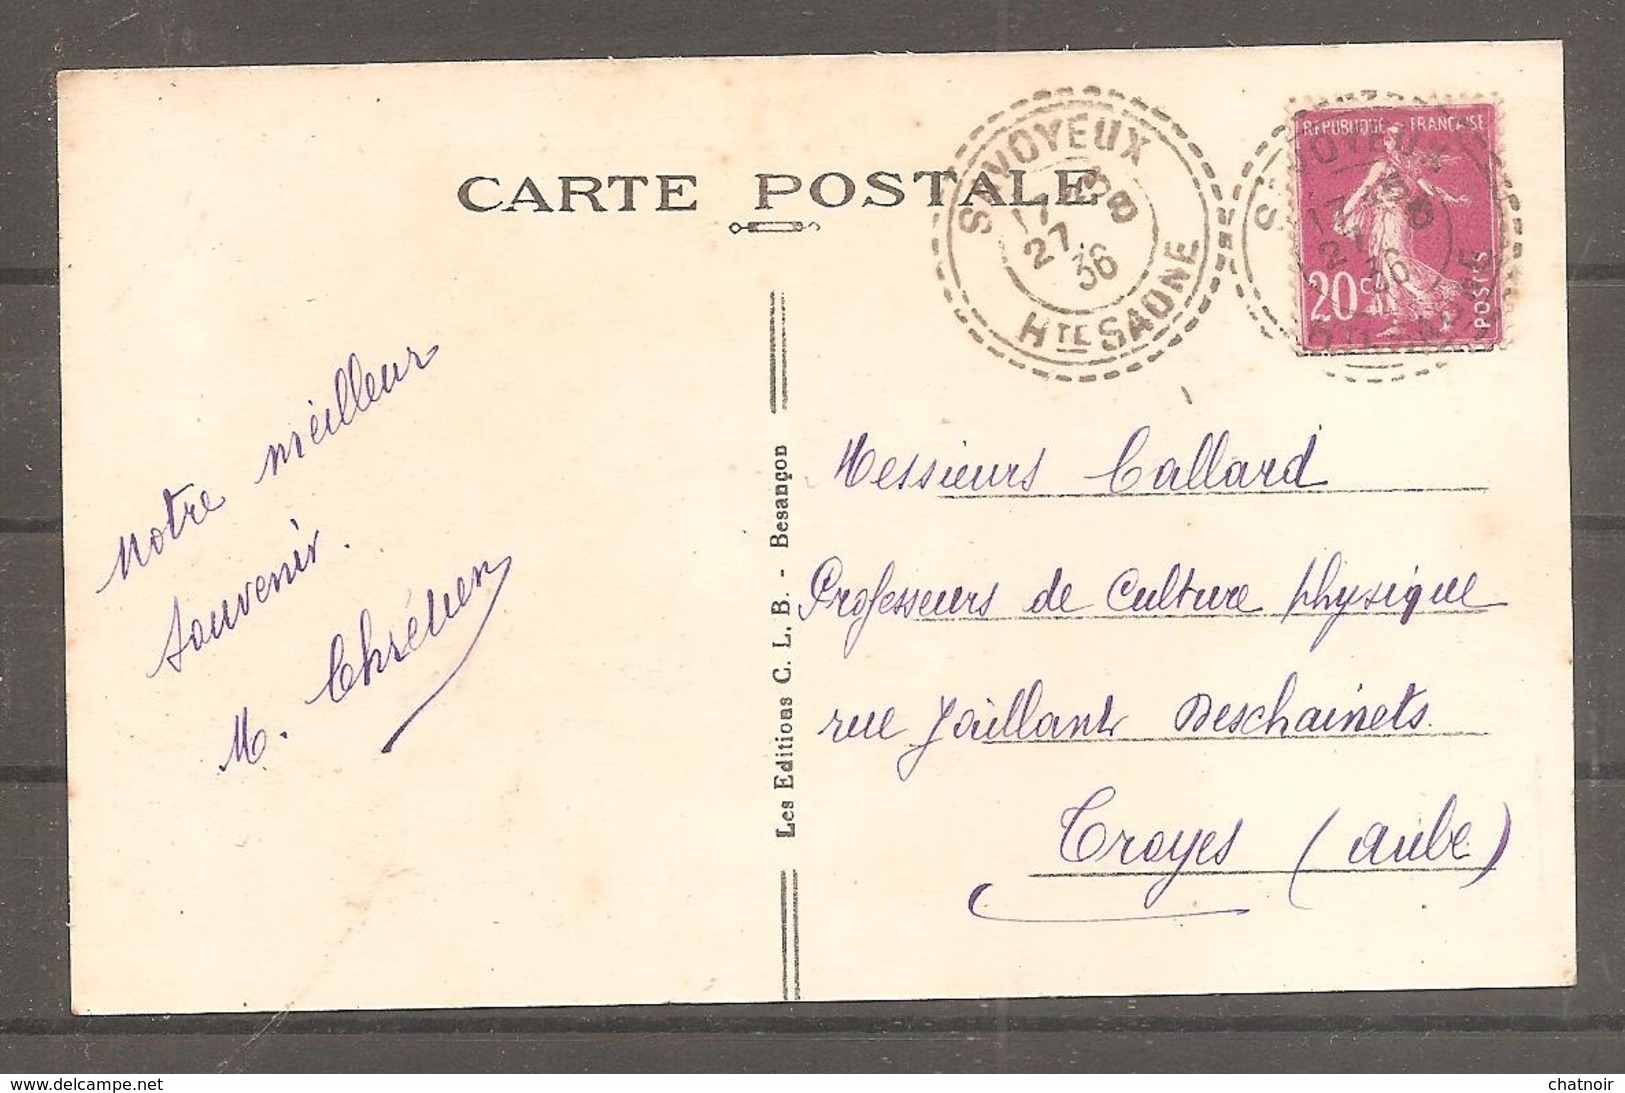 CARTE POSTALE
SAVOYEUX
17 30
27.
36
HTE SAONE
REPUBLIQUE FRANCAISE
20c
POSTES
Notre meilleur
souvenir.
M.
Les Editions C. L. B. - Besançon
Messieurs Callard
Professeurs de Culture physique
rue Jaillant Deschainets
Troyes (Aube)
www.delcampe.net
chatnoir